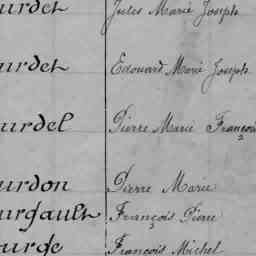 urdet Jules Marie Joseph
urdet Edouard Marie Joseph
urdel Pierre Marie François
urdon Pierre Marie
urgault François Pierre
urge François Michel